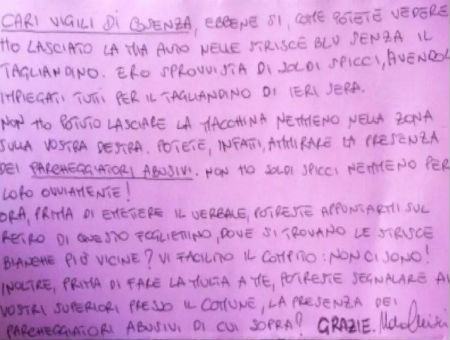 CARI VIGILI DI COSENZA, EBBENE SI, COME POTETE VEDERE
HO LASCIATO LA MIA AUTO NELLE STRISCE BLU SENZA IL
TAGLIANDINO. ERO SPROVVISTA DI SOLDI SPICCI, AVENDOL
IMPIEGATI TUTTI PER IL TAGLIANDINO DI IERI SERA.
NON HO POTUTO LASCIARE LA MACCHINA NEMMENO NELLA ZONA
SULLA VOSTRA DESTRA. POTETE, INFATTI, AMMIRARE LA PRESENZA
DEI PARCHEGGIATORI ABUSIVI. NON HO SOLDI SPICCI NEMMENO PER
LORO OVVIAMENTE!
ORA, PRIMA DI EMETTERE IL VERBALE, POTRESTE APPUNTARMI SUL
RETRO DI QUESTO FOGLIETTINO, DOVE SI TROVANO LE STRISCE
BIANCHE PIÙ VICINE? VI FACILITO IL COMPITO: NON CI SONO!
INOLTRE, PRIMA DI FARE LA MULTA A ME, POTRESTE SEGNALARE AI
VOSTRI SUPERIORI PRESSO IL COMUNE, LA PRESENZA DEI
PARCHEGGIATORI ABUSIVI DI CUI SOPRA? GRAZIE.